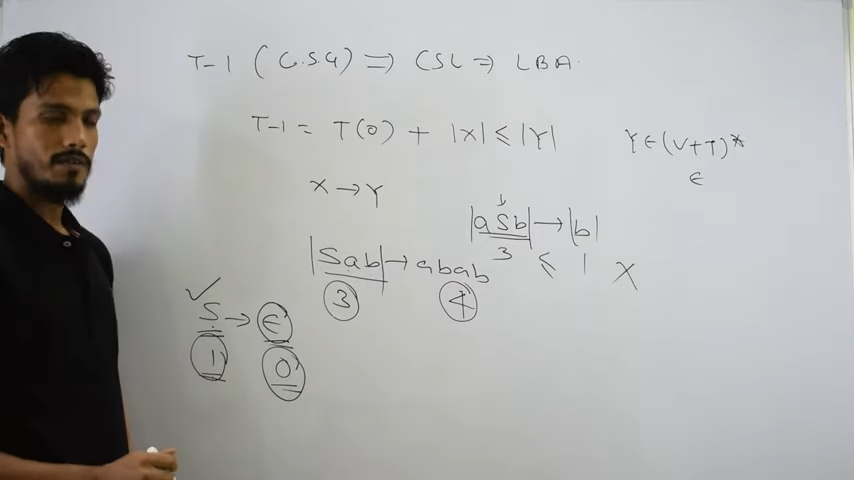 T-1 ( C.S.G) ⇒ CSL ⇒ LBA.
T-1 = T(0) + |X| ≤ |Y|
Y ∈ (V+T)*
ϵ
X → Y
|aSb| → |b|
3 ≤ 1 X
|Sab| → abab
3 4
✓
S → ϵ
1 0